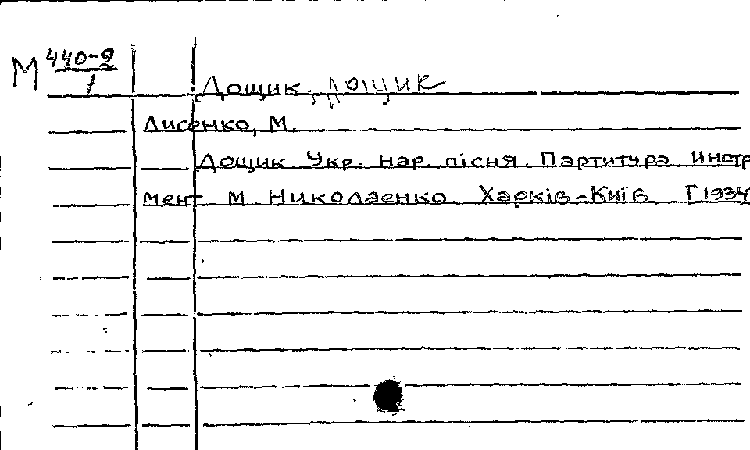 М 440-2
1
Дощик, дощик
Лисенко, М.
Дощик Укр. нар. пісня. Партитура. Инстр
мент М Николаенко Харків-Київ [1934